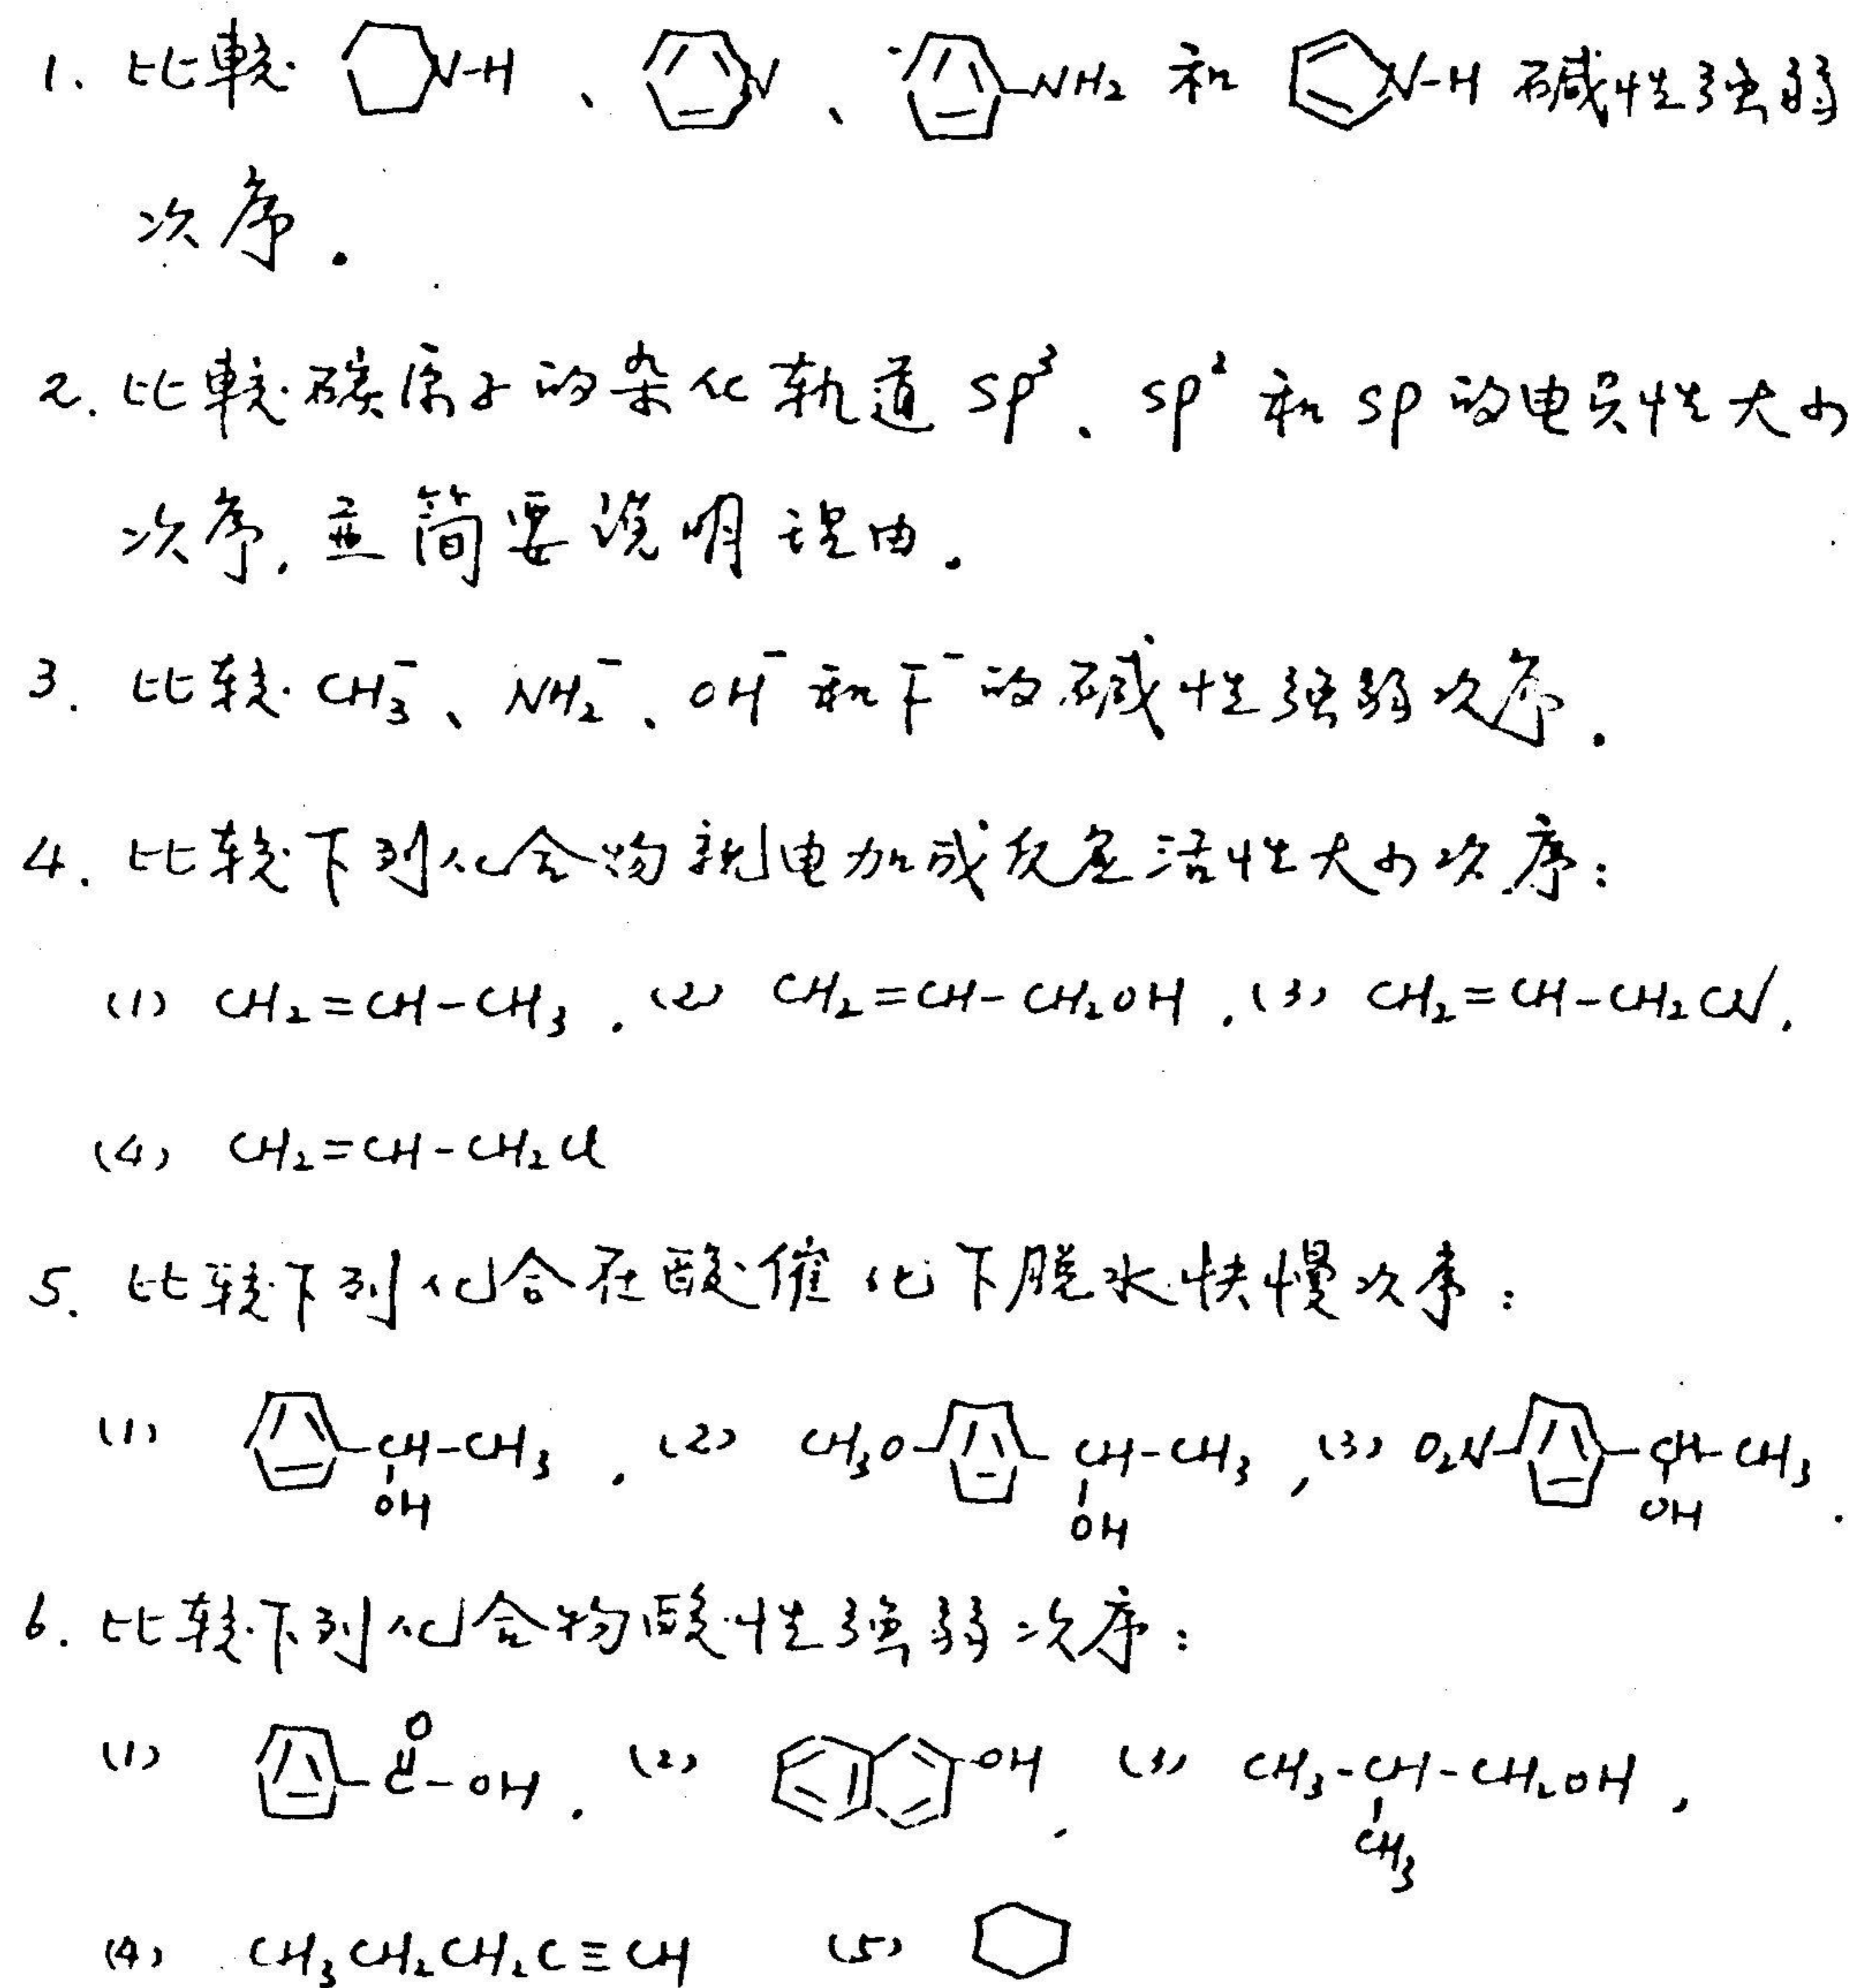 1. 比較 N-H 、 N 、 -NH₂ 和 N-H 碱性强弱
次序.
2. 比較碳原子的杂化轨道 sp³、sp² 和 sp 的电负性大小
次序, 並简要说明理由.
3. 比较 CH₃⁻、NH₂⁻、OH⁻ 和 F⁻ 的碱性强弱次序.
4. 比较下列化合物亲电加成反应活性大小次序:
(1) CH₂=CH-CH₃ . (2) CH₂=CH-CH₂OH . (3) CH₂=CH-CH₂CN .
(4) CH₂=CH-CH₂Cl
5. 比较下列化合在酸催化下脱水快慢次序:
(1) -CH-CH₃ , (2) CH₃O- -CH-CH₃ , (3) O₂N- -CH-CH₃ .
OH OH OH
6. 比较下列化合物酸性强弱次序:
(1) -C-OH . (2) -OH , (3) CH₃-CH-CH₂OH ,
O CH₃
(4) CH₃CH₂CH₂C≡CH (5)